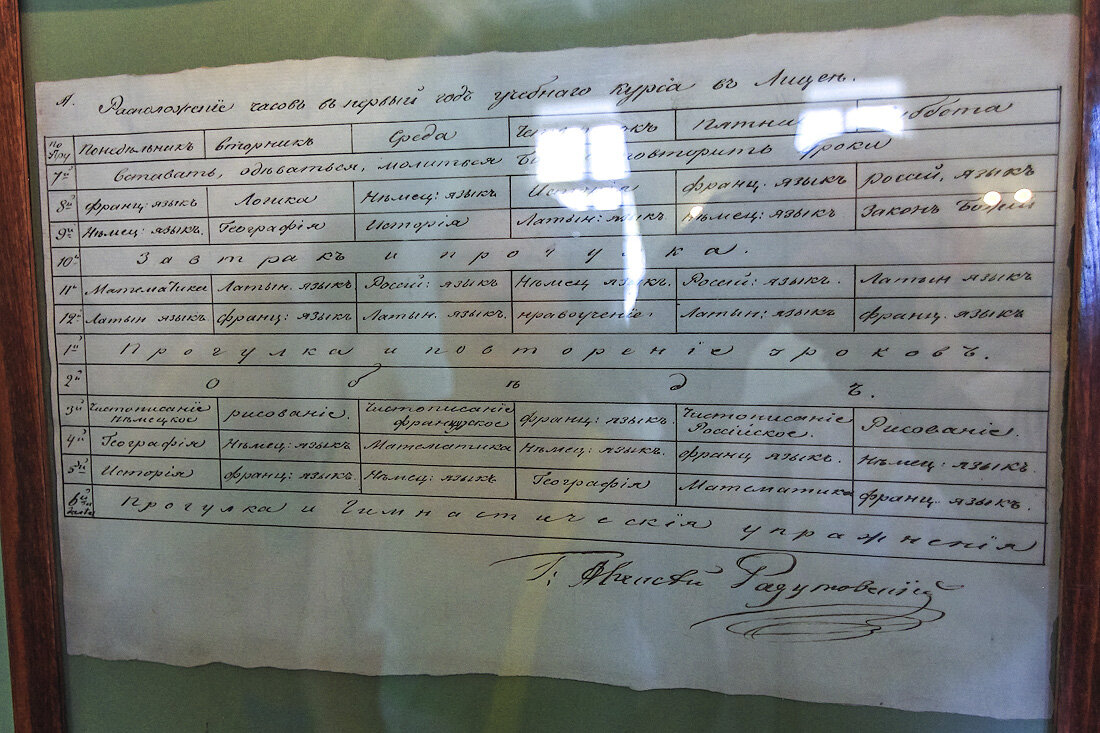 А. Расположеніе часовъ въ первый годъ учебнаго курса въ Лицеѣ.
по Понедѣльникъ Вторникъ Среда Суббота
7й Вставать, одѣваться, молиться повторить уроки
8й франц: языкъ Логика Нѣмец: языкъ франц. языкъ Россій. языкъ
9й Нѣмец: языкъ. Географія Исторія Латын: языкъ Нѣмец: языкъ Законъ Божій
10й Завтракъ и прогулка.
11й Математика Латын. языкъ Россій: языкъ Нѣмец языкъ. Россій: языкъ. Латын языкъ
12й Латын языкъ. франц: языкъ Латын. языкъ. нравоученіе. Латин: языкъ франц. языкъ
1й Прогулка и повтореніе уроковъ.
2й Обѣдъ.
3й Чистописаніе Нѣмецкое рисованіе. Чистописаніе французское франц: языкъ. Чистописаніе Россійское. Рисованіе.
4й Географія Нѣмец: языкъ Математика Нѣмец: языкъ. франц языкъ. Нѣмец: языкъ.
5й Исторія франц: языкъ. Нѣмец: языкъ Географія Математика франц. языкъ.
6й Прогулка и Гимнастическія упражненія